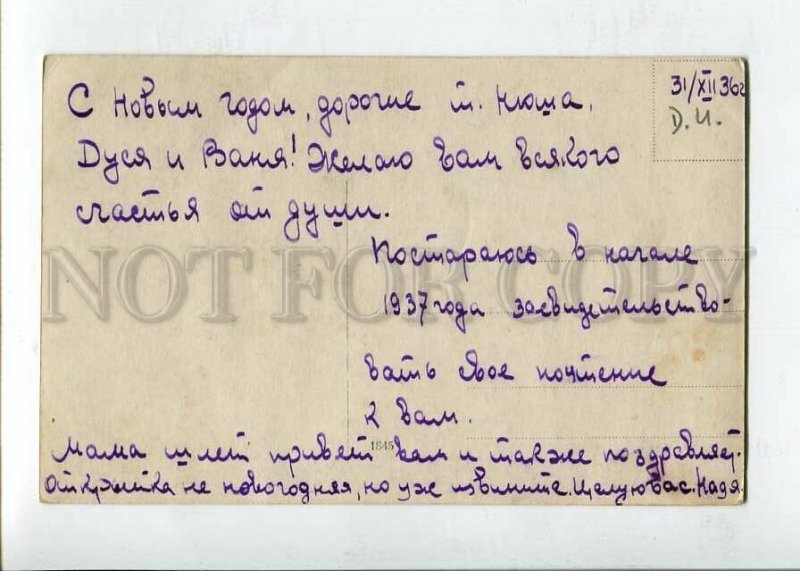 31/XII 36г
Д.И.
С Новым годом, дорогие т. Нюша,
Дуся и Ваня! Желаю вам всякого
счастья от души.
Постараюсь в начале
1937 года засвидетельство-
вать свое почтение
к вам.
1845
Мама шлет привет вам и также поздравляет.
Открытка не новогодняя, но уж извините. Целую Вас. Надя
NOT FOR COPY